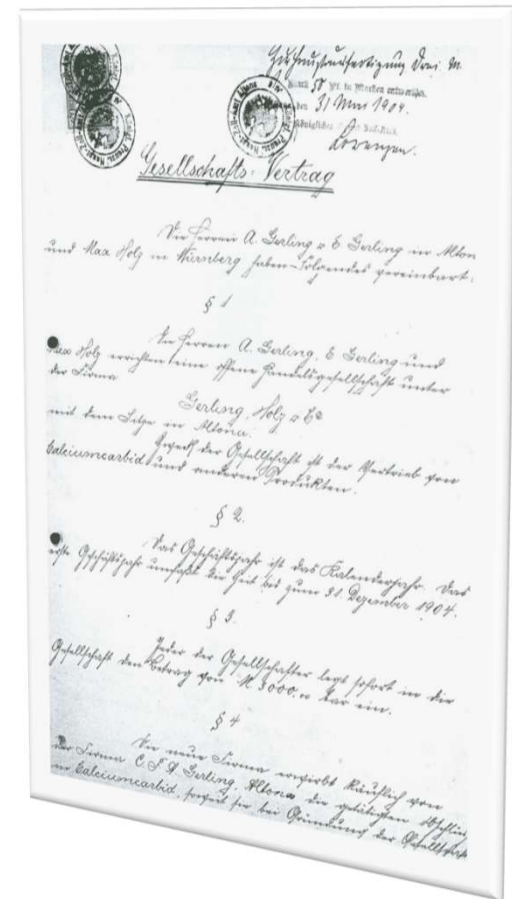 Zur Hauptausfertigung Drei M.
50 Pf. in Marken entwertet.
den 31 März 1904.
Königliches
Lorenzen.
Gesellschafts-Vertrag
Die Herren A. Gerling & E Gerling in Alton
und Max Holz in Nürnberg haben Folgendes vereinbart:
§ 1
Die Herren A. Gerling, E Gerling und
Max Holz errichten eine offene Handelsgesellschaft unter
der Firma
Gerling, Holz & Co
mit dem Sitze in Altona.
Zweck der Gesellschaft ist der Vertrieb von
Calciumcarbid und anderen Produkten.
§ 2.
Das Geschäftsjahr ist das Kalenderjahr. Das
erste Geschäftsjahr umfaßt die Zeit bis zum 31. Dezember 1904.
§ 3.
Jeder der Gesellschafter legt sofort in die
Gesellschaft den Betrag von M 3000.00 bar ein.
§ 4
Die neue Firma erwirbt käuflich von
der Firma C. F. A. Gerling, Altona die getätigten Abschlüsse
in Calciumcarbid, soweit sie bei Gründung der Gesellschaft